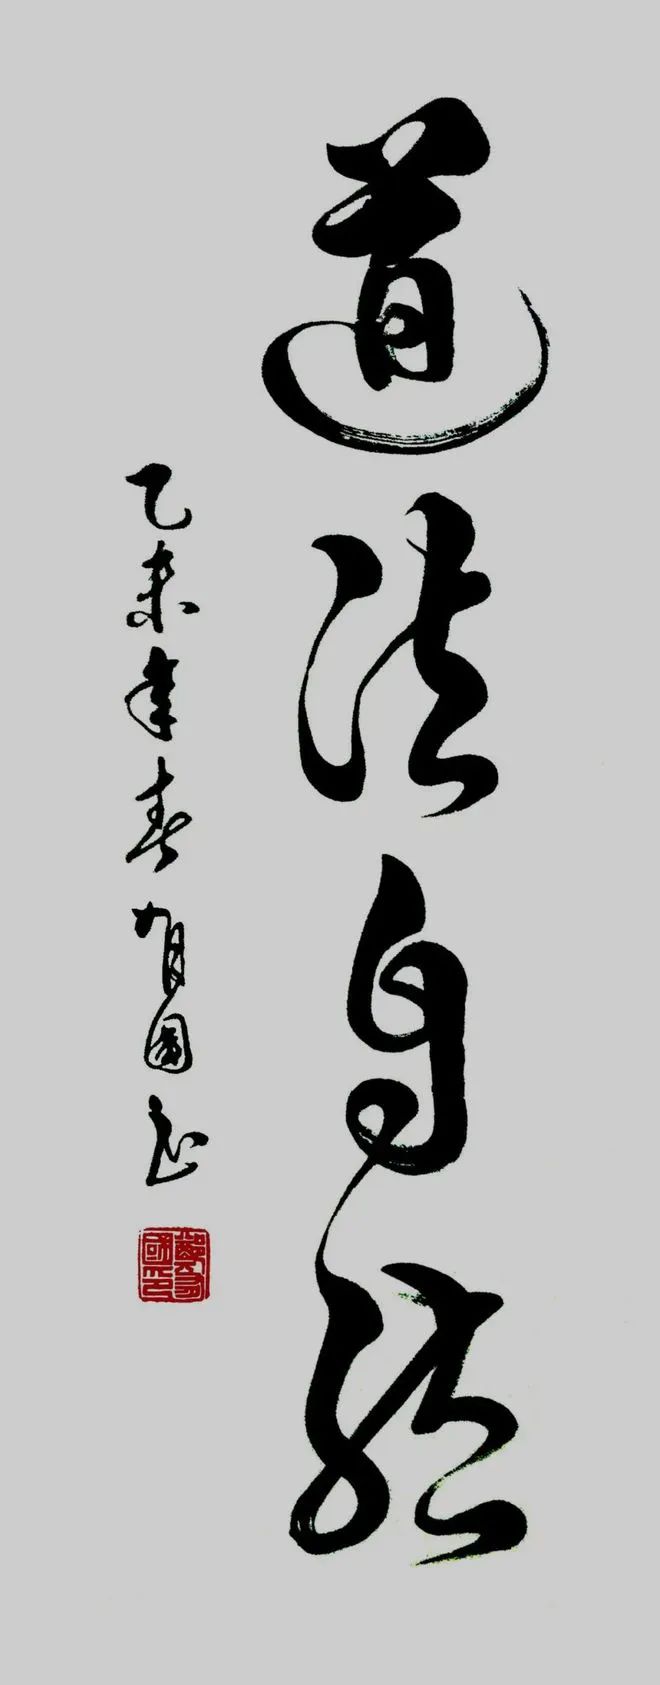 道法自然
乙未年春有国书